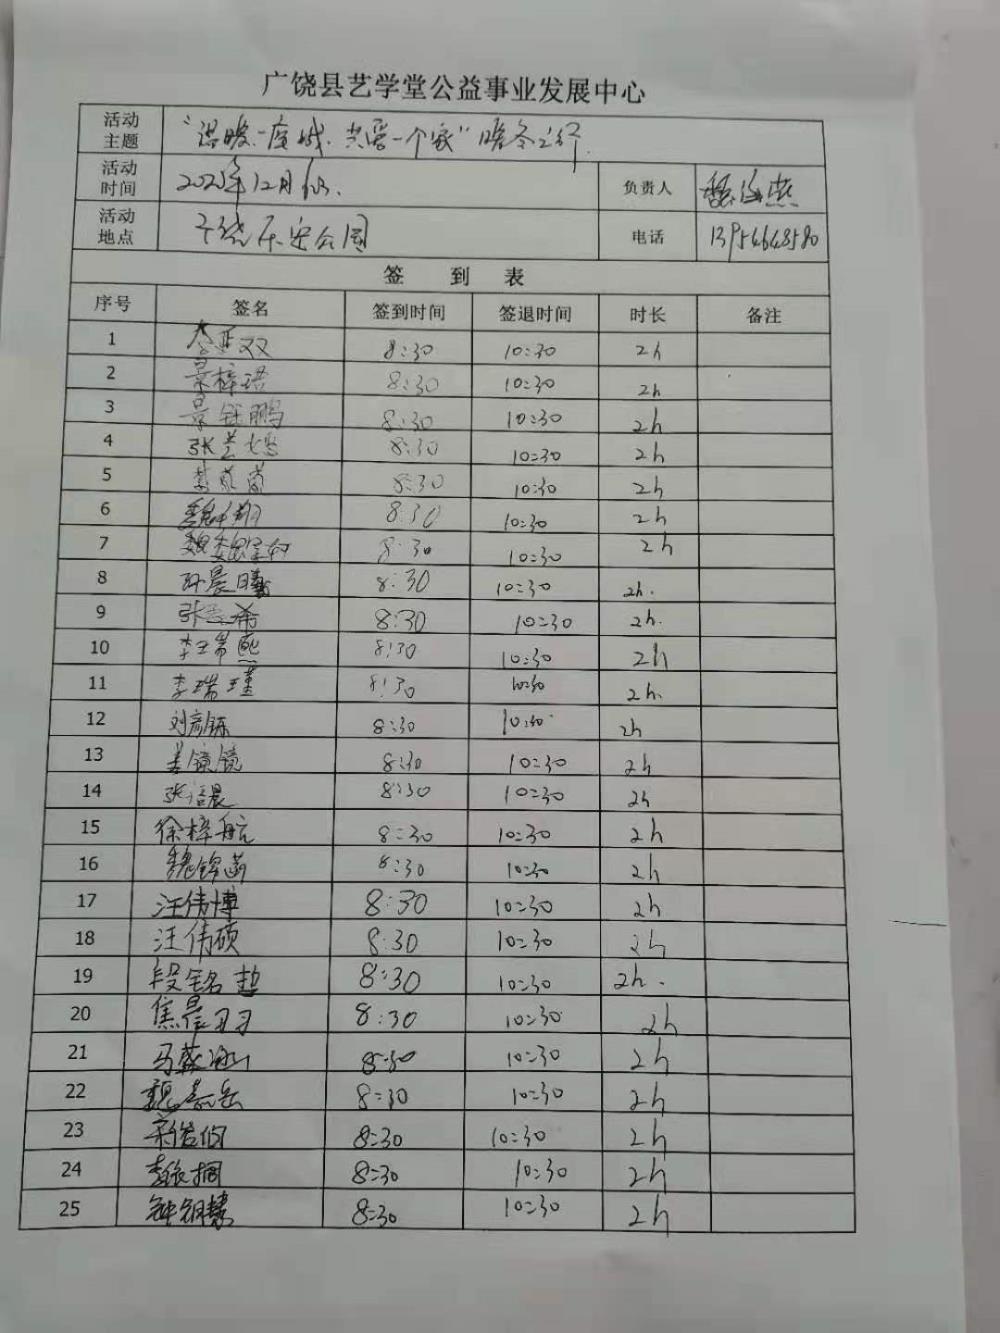 广饶县艺学堂公益事业发展中心
活动主题 "温暖一座城、共享一个家"暖冬之行
活动时间 2020年12月 负责人 魏海燕
活动地点 广饶乐安公园 电话 13954648580
签到表
序号 签名 签到时间 签退时间 时长 备注
1 李亚双 8:30 10:30 2h
2 景梓珺 8:30 10:30 2h
3 景钰鹏 8:30 10:30 2h
4 张 8:30 10:30 2h
5 8:30 10:30 2h
6 魏翔 8:30 10:30 2h
7 魏 8:30 10:30 2h
8 孙晨曦 8:30 10:30 2h.
9 张 希 8:30 10:30 2h.
10 李 熙 8:30 10:30 2h
11 李瑞瑾 8:30 10:30 2h.
12 刘彦 8:30 10:30 2h
13 姜镜镜 8:30 10:30 2h
14 张洁晨 8:30 10:30 2h
15 徐梓航 8:30 10:30 2h
16 魏锦 8:30 10:30 2h
17 汪伟博 8:30 10:30 2h
18 汪伟硕 8:30 10:30 2h
19 段铭哲 8:30 10:30 2h.
20 焦晨羽 8:30 10:30 2h
21 马 8:30 10:30 2h
22 魏嘉岳 8:30 10:30 2h
23 8:30 10:30 2h
24 桐 8:30 10:30 2h
25 钟 慧 8:30 10:30 2h